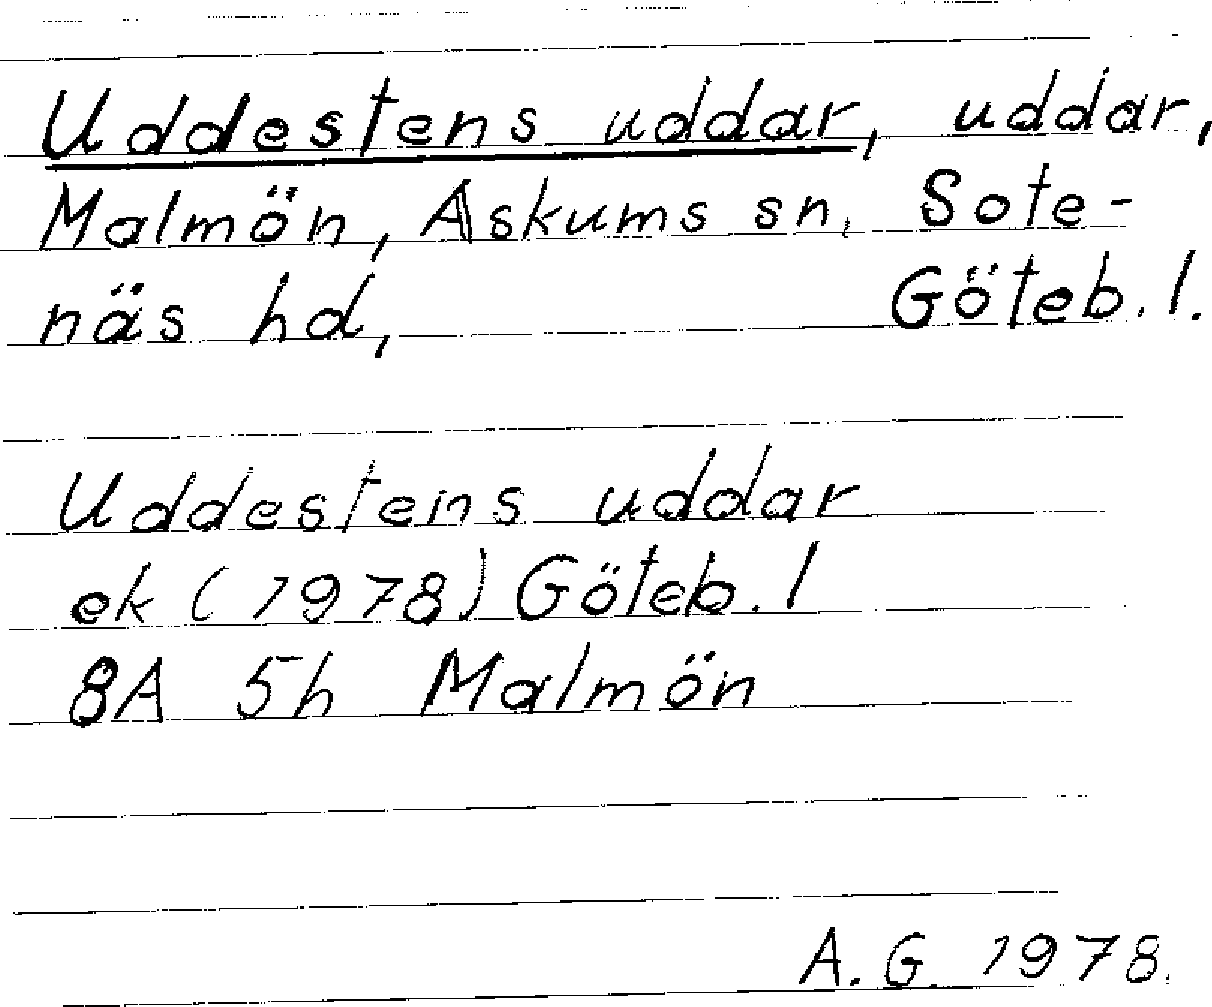 Uddestens uddar, uddar,
Malmön, Askums sn, Sote-
näs hd, Göteb. l.
Uddestens uddar
ek (1978) Göteb. l
8A 5h Malmön
A. G. 1978.